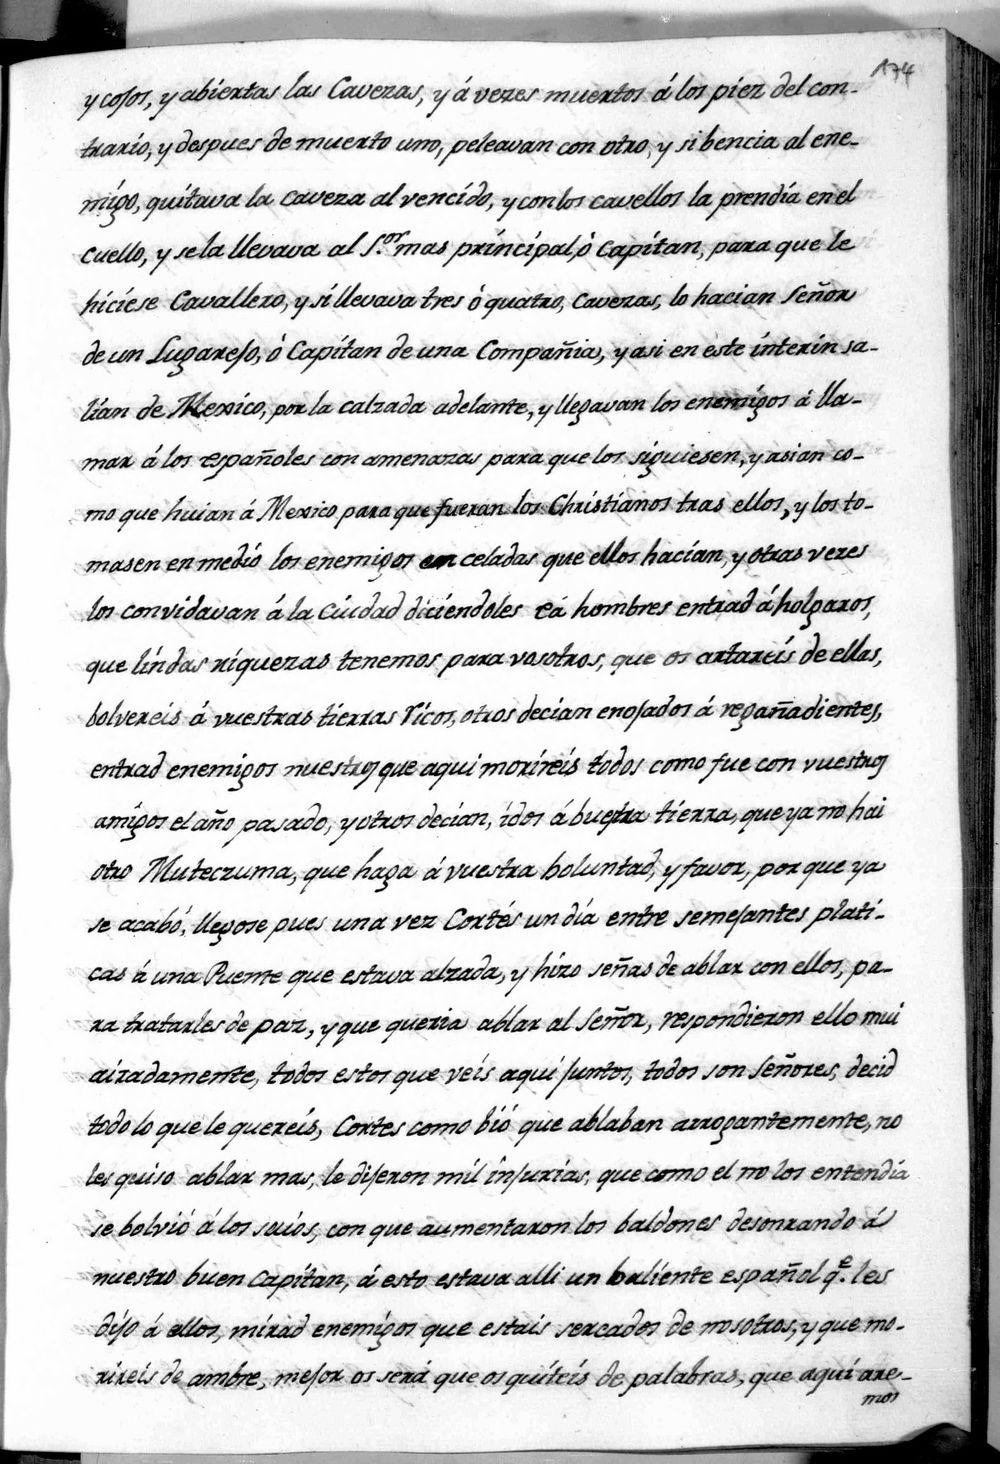 174
y cojos, y abiertas las Cavezas, y á vezes muertos á los piez del con-
trario, y despues de muerto uno, peleavan con otro, y si bencia al ene-
migo, quitava la caveza al vencido, y con los cavellos la prendia en el
cuello, y se la llevava al S.or mas principal, ò Capitan, para que le
hiciese Cavallero, y si llevava tres ò quatro, Cavezas, lo hacian Señor
de un Lugarejo, ò Capitan de una Compañia, y asi en este interin sa-
lian de Mexico, por la calzada adelante, y llegavan los enemigos á lla-
mar á los españoles con amenazas para que los siguiesen, y asian co-
mo que huian á Mexico para que fueran los Christianos tras ellos, y los to-
masen en medio los enemigos en celadas que ellos hacian, y otras vezes
los convidavan á la Ciudad diciendoles eá hombres entrad á holgaros,
que lindas riquezas tenemos para vosotros, que os artareis de ellas,
bolvereis á vuestras tierras ricos, otros decian enojados á regañadientes,
entrad enemigos nuestros que aqui morireis todos como fue con vuestros
amigos el año pasado, y otros decian, idos á buestra tierra, que ya no hai
otro Muteczuma, que haga á vuestra boluntad, y favor, por que ya
se acabó, llegose pues una vez Cortés un dia entre semejantes plati-
cas á una Puente que estava alzada, y hizo señas de ablar con ellos, pa-
ra tratarles de paz, y que queria ablar al Señor, respondieron ello mui
airadamente, todos estos que véis aqui juntos, todos son Señores, decid
todo lo que le quereis, Cortes como bió que ablaban arrogantemente, no
les quiso ablar mas, le dijeron mil injurias, que como el no los entendia
se bolvió á los suios, con que aumentaron los baldones desonrando á
nuestro buen Capitan, á esto estava alli un baliente español q.e les
dijo á ellos, mirad enemigos que estais sercados de nosotros, y que mo-
rireis de ambre, mejor os será que os quiteis de palabras, que aqui are-
mos